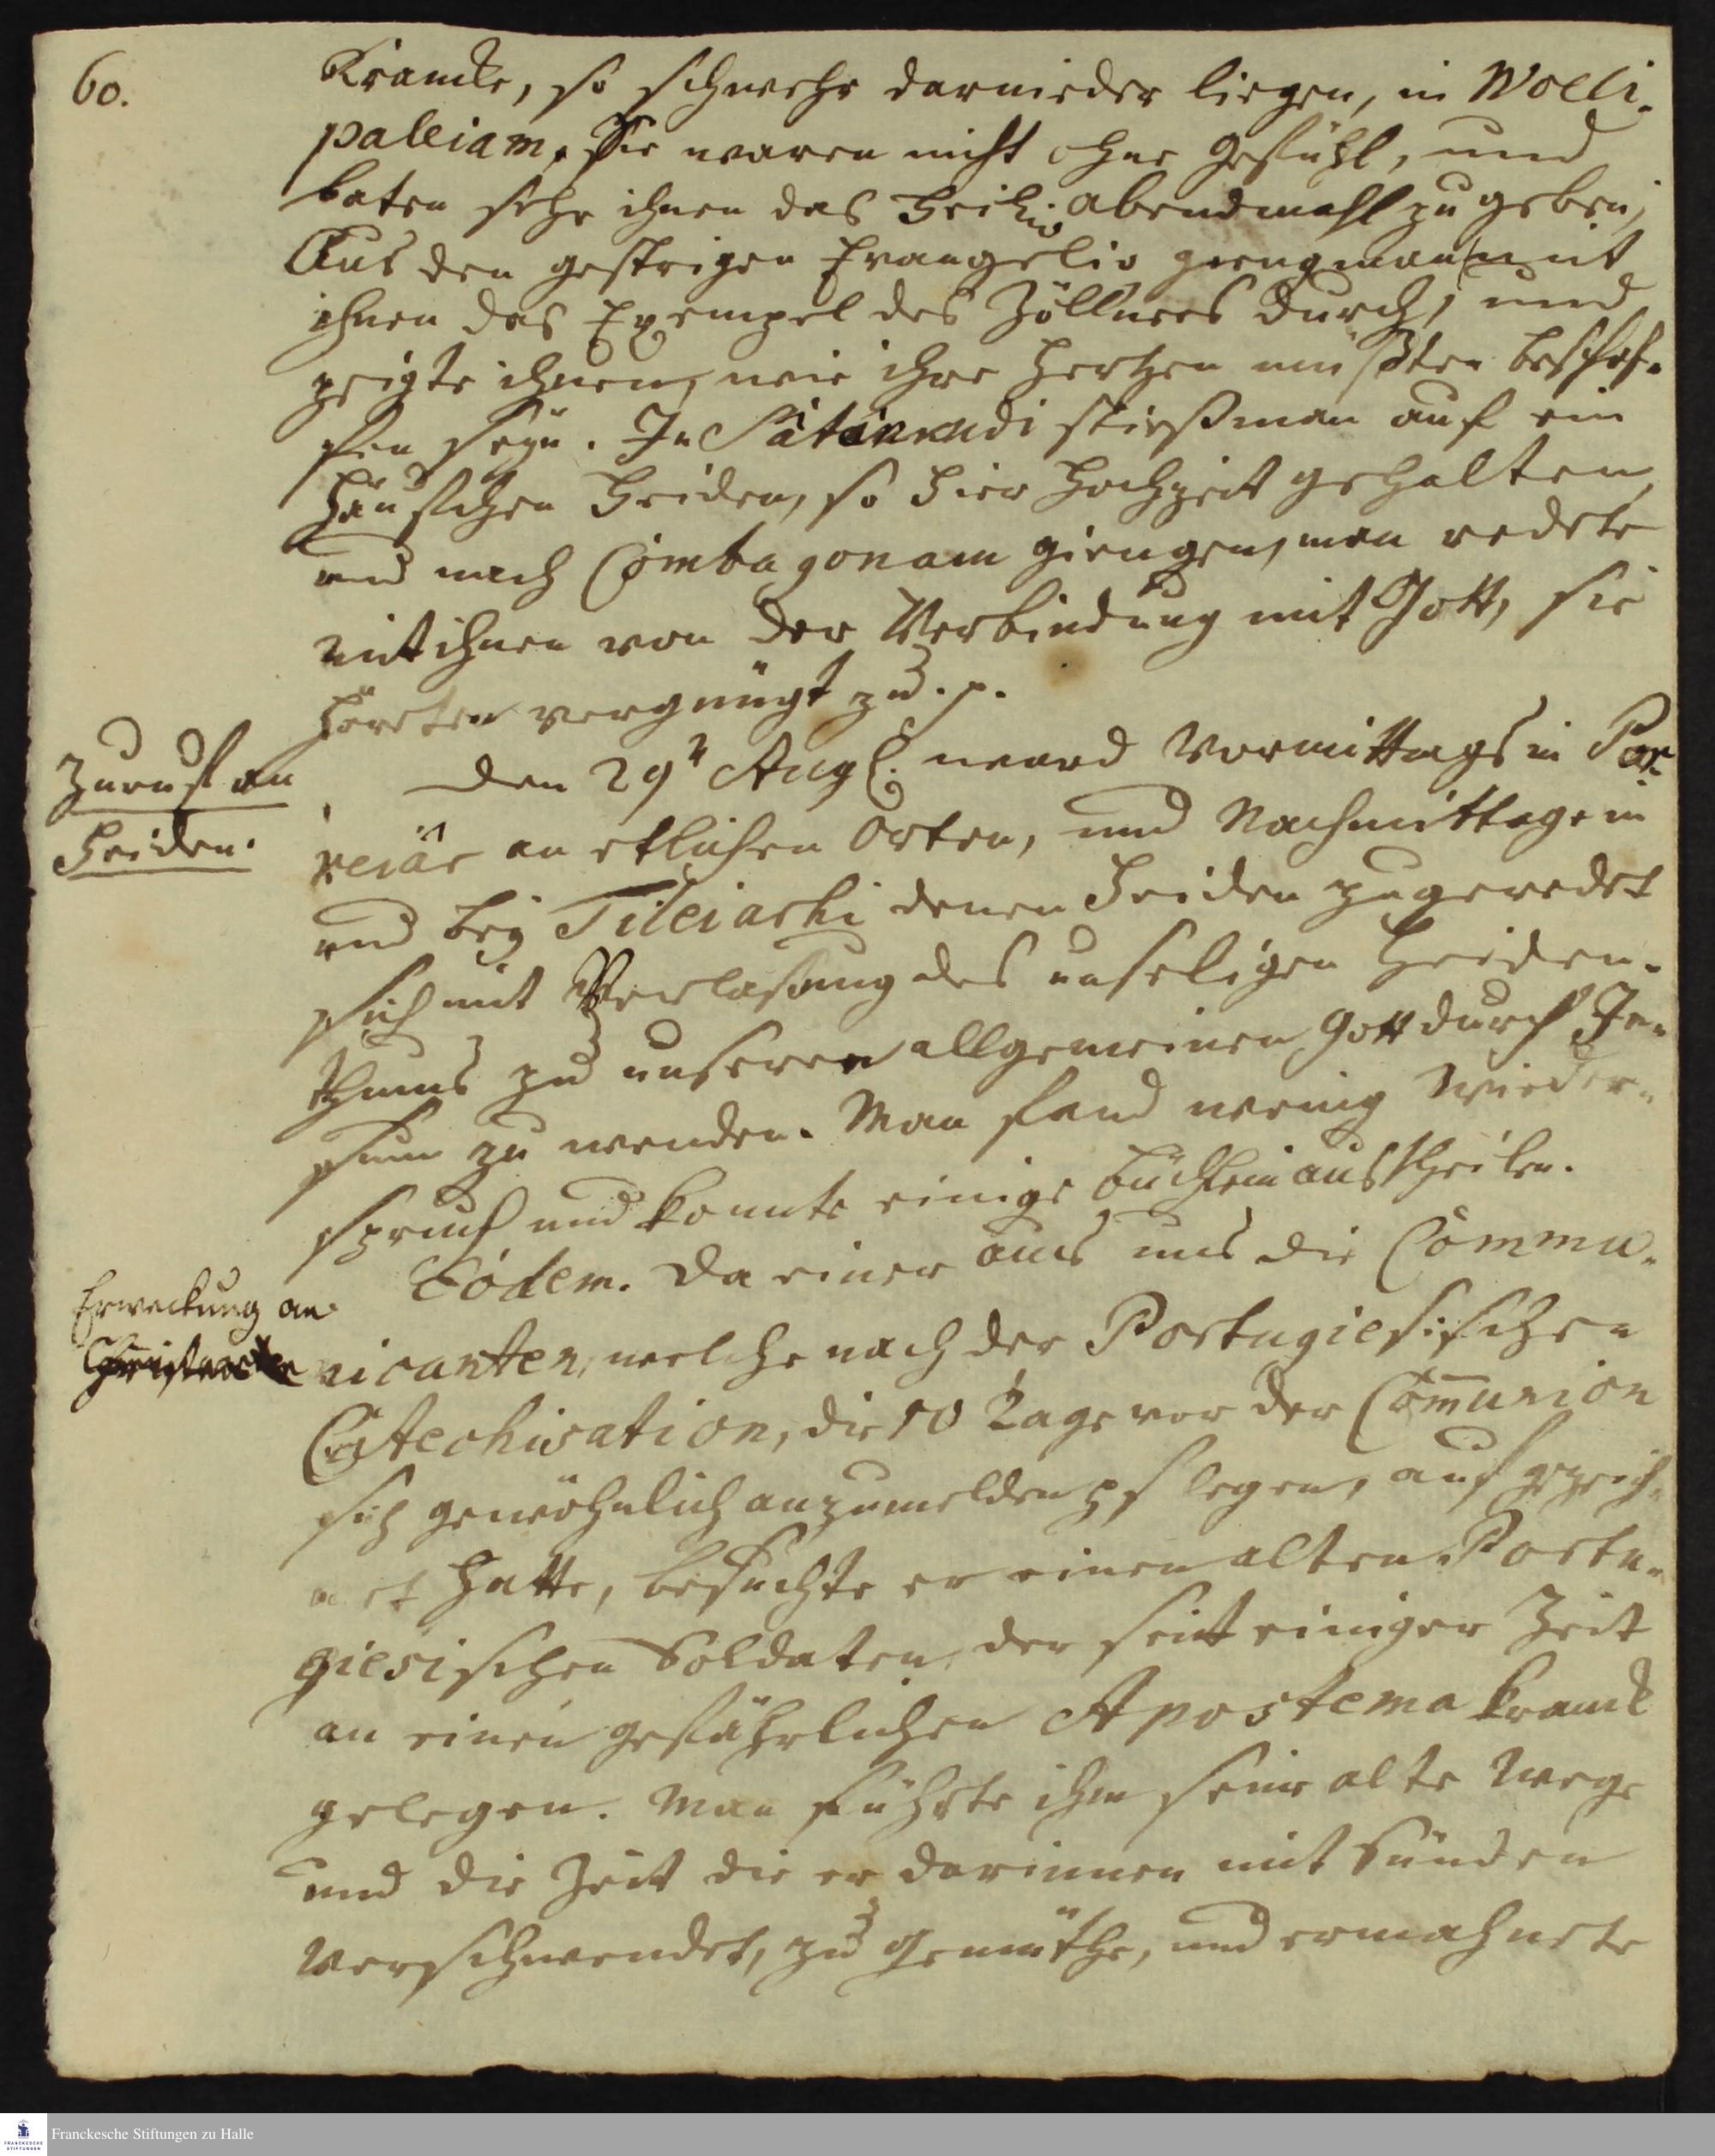 60.
Krancke, so schwehr darnieder liegen, in Welli-
paleiam. Sie waren nicht ohne Gefühl, und
baten sehr ihnen das Heil. Abendmahl zu geben,
Aus den gestrigen Evangelio gieng man mit
ihnen das Exempel des Zöllners durch, und
zeigte ihnen, wie ihre Hertzen müßten beschaf-
fen seyn. In Sátankudi stieß man auf ein
Häufchen Heiden, so hier Hochzeit gehalten,
und nach Combagonam giengen, man redete
mit ihnen von der Verbindung mit Gott, sie
höreten vergnügt zu. p.
Zuruf an
Heiden.
Den 29t Aug. ward Vormittags in Por-
reiär an etlichen Orten, und Nachmittage in
und bey Tileiarhi denen Heiden zugeredet
sich mit Verlassung des unseligen Heiden-
thums zu unseren allgemeinen Gott durch Je-
sum zu wenden. Man fand wenig Wieder-
spruch und konnte einige Büchlein austheilen.
Erweckung an
Christen
Eodem. Da einer aus uns die Commu-
nicanten, welche nach der Portugiesischen
Catechisation, die 10 Tage vor der Com̅union
sich gewöhnlich anzumelden pflegen, aufgezeich-
net hatte, besuchte er einen alten Portu-
giesischen Soldaten, der seit einiger Zeit
an einen gefährlichen Apostema kranck
gelegen. Man führte ihm seine alte Wege
und die Zeit die er darinnen mit Sünden
verschwendet, zu Gemüthe, und ermahnete
Franckesche Stiftungen zu Halle
FRANCKESCHE
STIFTUNGEN